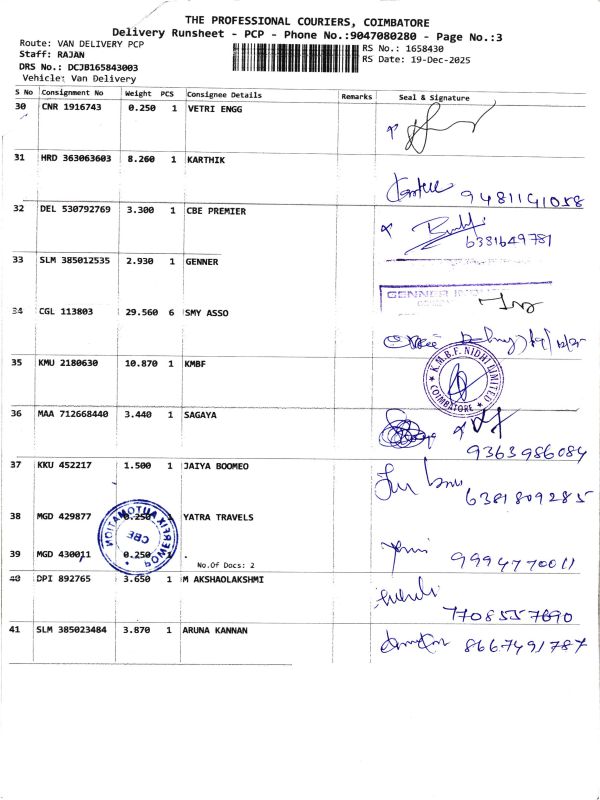 THE PROFESSIONAL COURIERS, COIMBATORE
Delivery Runsheet - PCP - Phone No.:9047080280 - Page No.:3
Route: VAN DELIVERY PCP
RS No.: 1658430
Staff: RAJAN
RS Date: 19-Dec-2025
DRS No.: DCJB165843003
Vehicle: Van Delivery
S No Consignment No Weight PCS Consignee Details Remarks Seal & Signature
30 CNR 1916743 0.250 1 VETRI ENGG
31 HRD 363063603 8.260 1 KARTHIK
9481141058
32 DEL 530792769 3.300 1 CBE PREMIER
6381649781
33 SLM 385012535 2.930 1 GENNER
GENNER
34 CGL 113803 29.560 6 SMY ASSO
35 KMU 2180630 10.870 1 KMBF
K.M.B.F. NIDHI LIMITED
COIMBATORE
36 MAA 712668440 3.440 1 SAGAYA
9363986084
37 KKU 452217 1.500 1 JAIYA BOOMEO
6381809285
38 MGD 429877 0.250 1 YATRA TRAVELS
39 MGD 430011 0.250 1
9994770011
No.Of Docs: 2
POMERFIX AUTOMATION
CBE
40 DPI 892765 3.650 1 M AKSHAOLAKSHMI
7708557690
41 SLM 385023484 3.870 1 ARUNA KANNAN
8667491787